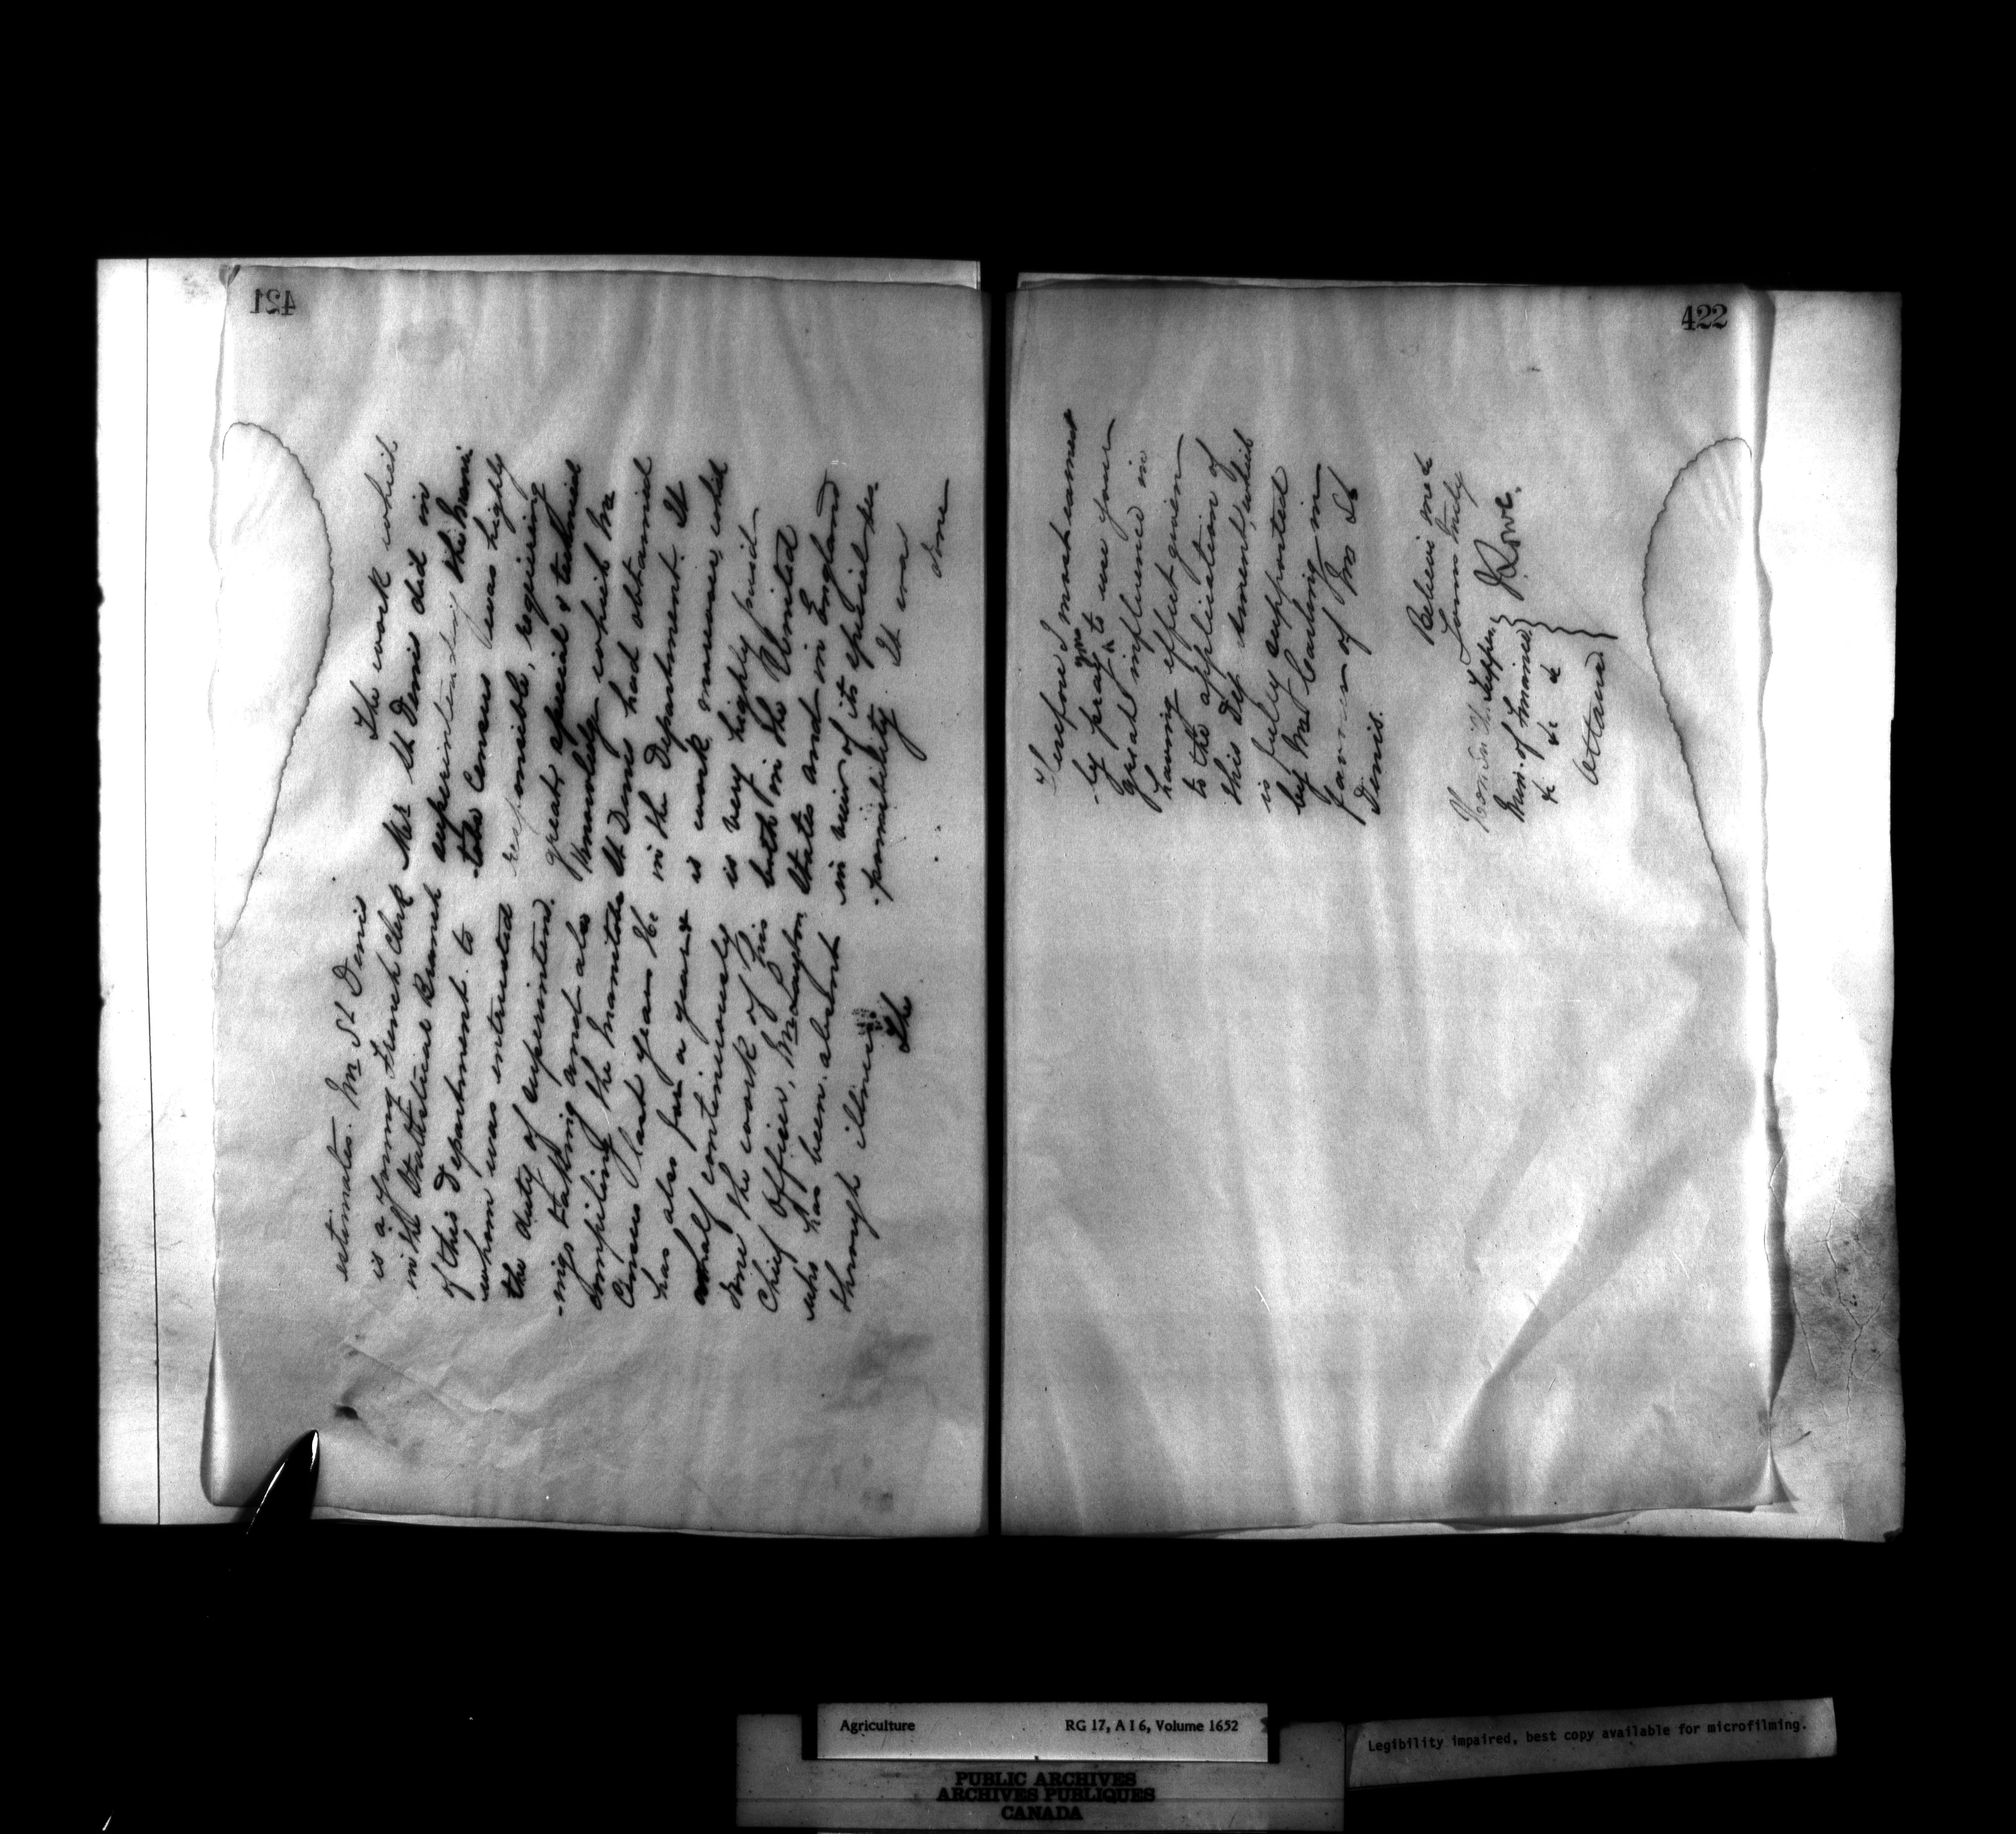 421
estimates. Mr St Denis
is a young French Clerk
in the Statistical Branch
of this Department to
whom was entrusted
the duty of superintend-
-ing taking and also
compiling the Manitoba
Census last year. He
has also for a year &
a half continuously
done the work of his
Chief Officer, Mr Layton
who has been absent
through illness.
The
The work which
Mr St Denis did in
superintending the Mani-
-toba Census was highly
responsible, requiring
great special & technical
knowledge which Mr
St Denis had obtained
in the Department. It
is work moreover, which
is very highly paid
both in the United
States and in England
in view of its special res-
-ponsibility. It was
done
422
Therefore I most earnest
-ly pray you to use your
great influence in
having effect given
to the application of
this Department, which
is fully supported
by Mr Carling in
favour of Mr St
Denis.
Believe me &
Yours truly
J Lowe.
Honr Sir Ch. Tupper
Min. of Finance
&c &c &c
Ottawa
Agriculture RG 17, A I 6, Volume 1652
Legibility impaired, best copy available for microfilming.
PUBLIC ARCHIVES
ARCHIVES PUBLIQUES
CANADA